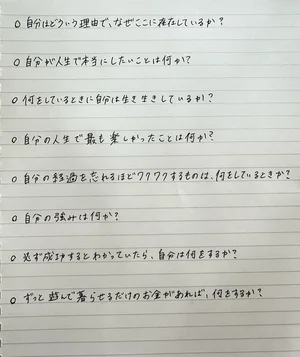 ○ 自分はどういう理由で、なぜここに存在しているか?
○ 自分が人生で本当にしたいことは何か?
○ 何をしているときに自分は生き生きしているか?
○ 自分の人生で最も楽しかったことは何か?
○ 自分の経過を忘れるほどワクワクするものは、何をしているときか?
○ 自分の強みは何か?
○ 必ず成功するとわかっていたら、自分は何をするか?
○ ずっと遊んで暮らせるだけのお金があれば、何をするか?